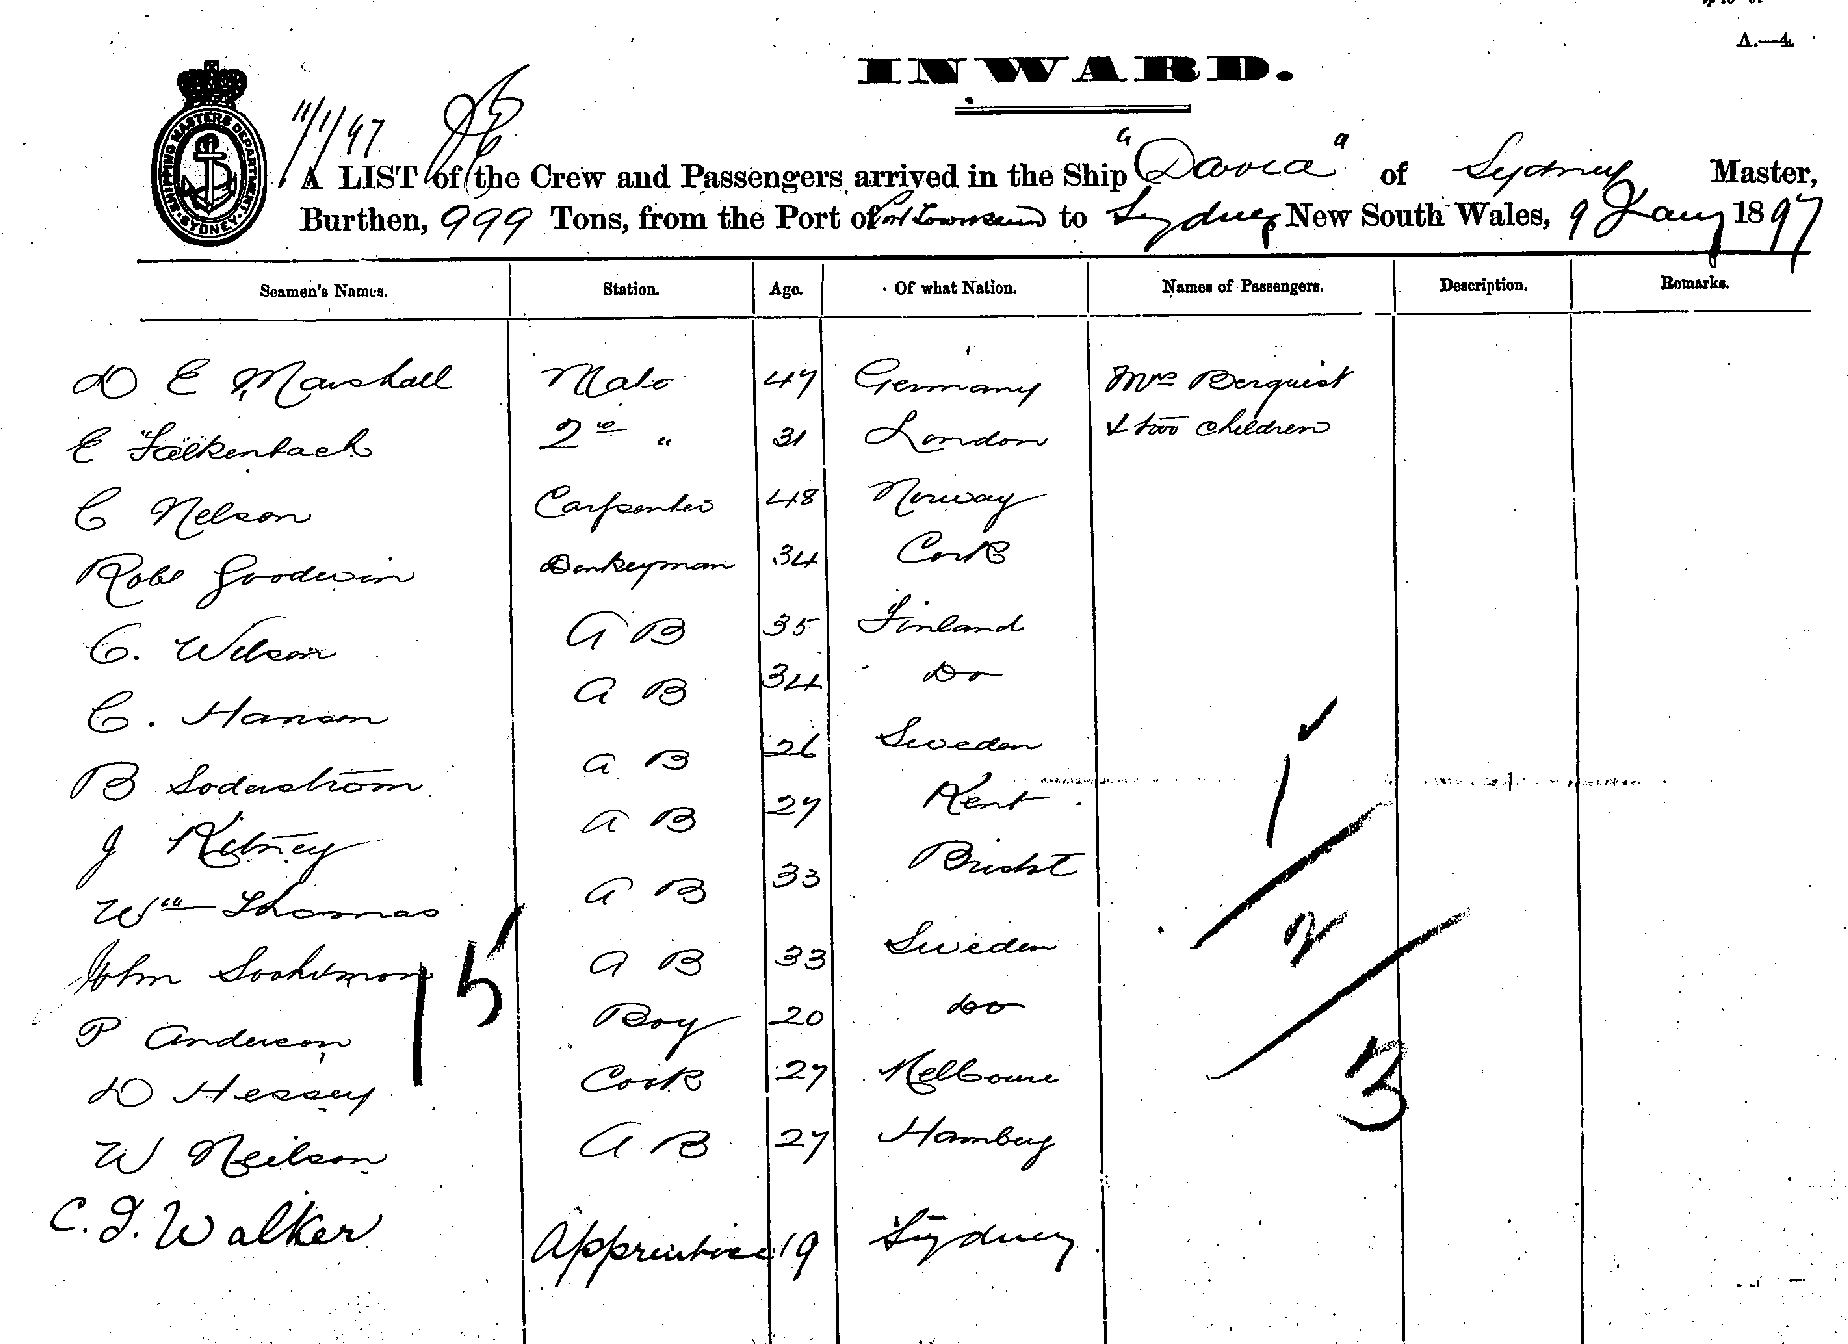 A.—4.
INWARD.
11/1/97
SHIPPING MASTERS DEPARTMENT N.S.W. SYDNEY
A LIST of the Crew and Passengers arrived in the Ship "David" of Sydney Master,
Burthen, 999 Tons, from the Port of Port Townsend to Sydney New South Wales, 9 Jany 1897
Seamen's Names. Station. Age. Of what Nation. Names of Passengers. Description. Remarks.
D E Marshall Mate 47 Germany Mrs Berquist
E Falkenbach 2nd " 31 London & two children
C Nelson Carpenter 48 Norway
Robt Goodwin Donkeyman 34 Cork
C. Wilson A B 35 Finland
C. Hanson A B 34 Do
B Soderstrom A B 26 Sweden
J Kitney A B 27 Kent
Wm Thomas A B 33 Bristol
John A B 33 Sweden
P Anderson Boy 20 Do
D Hessey Cook 27 Melbourne
W Neilson A B 27 Hamburg
C. J. Walker Apprentice 19 Sydney
15
1
2
3